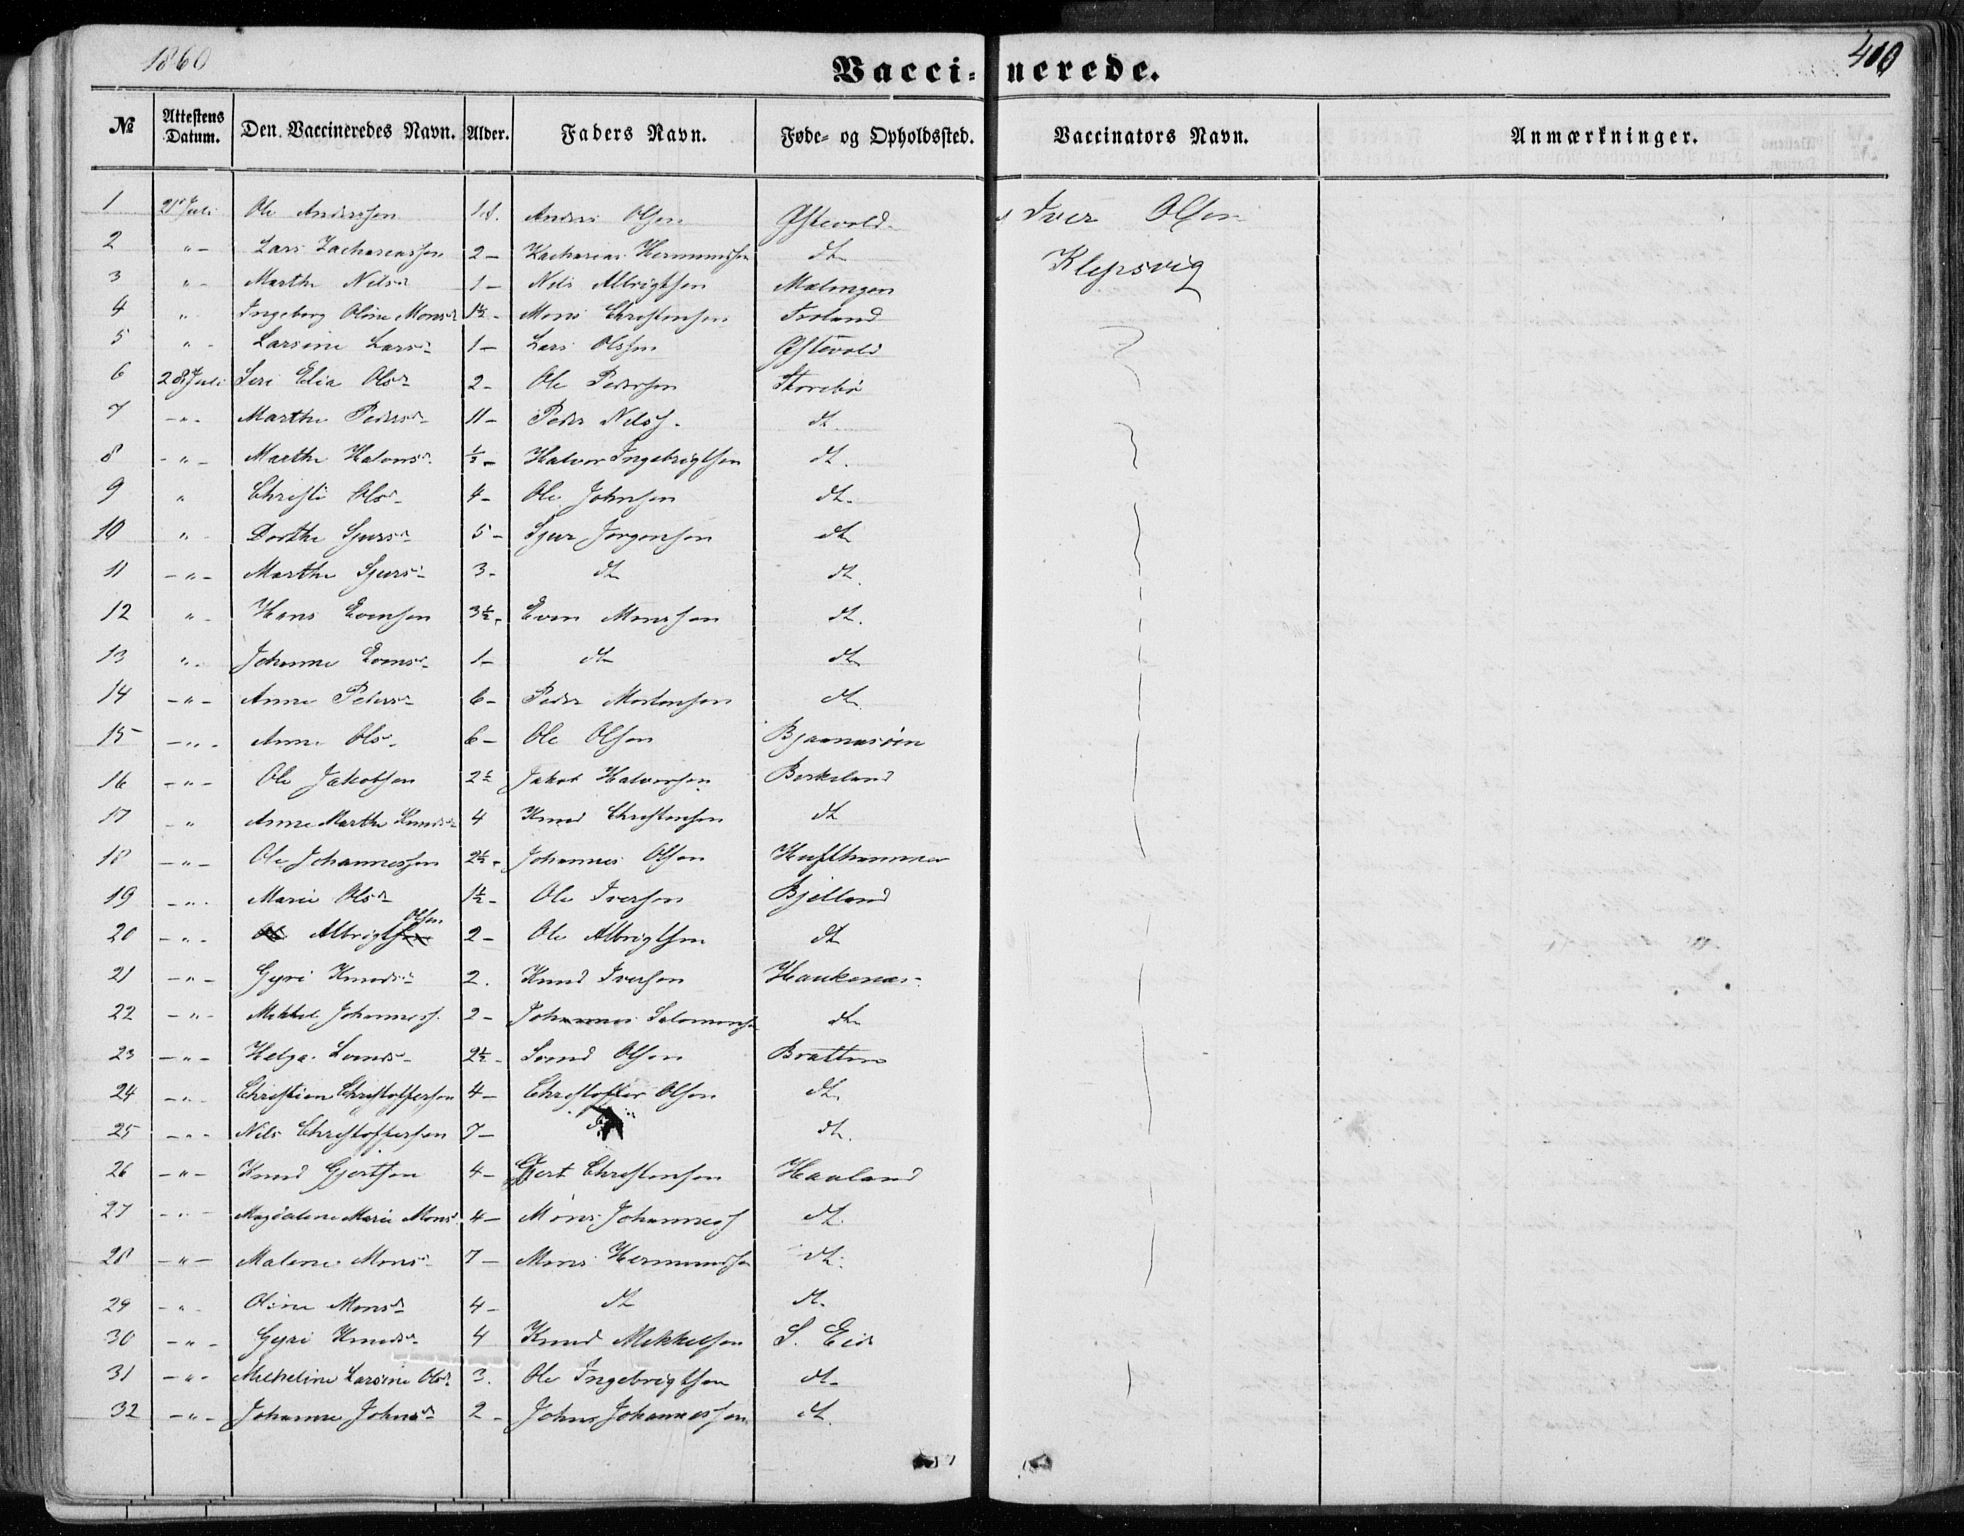 1860
Vaccinerede.
400
№ Attestens Datum. Den Vaccineredes Navn. Alder. Faders Navn. Føde- og Opholdssted. Vaccinators Navn. Anmærkninger.
1 21 Juli Ole Anderssen Anders Olsen Østevold Iver Olsen
2 „ - Lars Zachariassen 2 - Zacharias Hermundsen dt Klepsvig
3 „ - Marthe Nilsd 1 - Nils Albrigtsen Melingen
4 „ Ingeborg Oline Monsd 1½ - Mons Christensen Troland
5 „ - Larsine Larsd 1 - Lars Olssen Østevold
6 28 Juli Siri Elia Olsd 2 - Ole Pedersen Storebø
7 - „ - Marthe Pedersd 11 - Peder Nilss. dt
8 - „ - Marthe Halvorsd ½ - Halvor Ingebrigtsen dt.
9 „ Christi Olsd 4 - Ole Johnsen dt.
10 „ Dorthe Sjursd 5 - Sjur Jørgensen dt
11 - „ - Marthe Sjursd 3 - dt dt.
12 „ - Hans Evensen 3½ - Even Monssen dt.
13 „ - Johanne Evensd 1 - dt dt
14 - „ - Anne Pedersd 6 - Peder Mortensen dt
15 - „ - Anne Olsd 6 - Ole Olsen Bjørnarøen
16 - „ - Ole Jakobsen 2½ Jakob Halvorsen Birkeland
17 - „ Anne Marthe Knudsd 4 Knud Christensen dt
18 - „ - Ole Johannessen 2½ - Johannes Olsen Hufthammer
19 - „ - Marie Olsd 1½ - Ole Iversen Bjelland
20 - „ - Albrigt Olsen 2 - Ole Albrigtsen dt
21 - „ - Gyri Knudsd 2. Knud Iversen Haukenæs
22 - „ - Mikkel Johanness. 2 - Johannes Salomonsen dt
23 - „ - Helga 2½ - Olsen Bratten
24 - „ - Christian Christoffersen 4 - Christoffer Olsen dt.
25 - „ - Nils Christoffersen 7 - dt dt.
26 - „ - Knud Gjertsen 4 - Gjert Christensen Haaland
27 - „ - Magdalene Marie Monsd 4 - Mons Johanness dt.
28 - „ - Malene Monsd 7 - Mons Hermundsen dt.
29 - „ - Oline Monsd 4 - dt dt.
30 - „ - Gyri Knudsd 4 Knud Mikkelsen S. Eide
31 - „ - Micheline Larsine Olsd 3. Ole Ingebrigtsen dt
32 - „ - Johanne Johnsd 2 - Johns Johannessen dt.